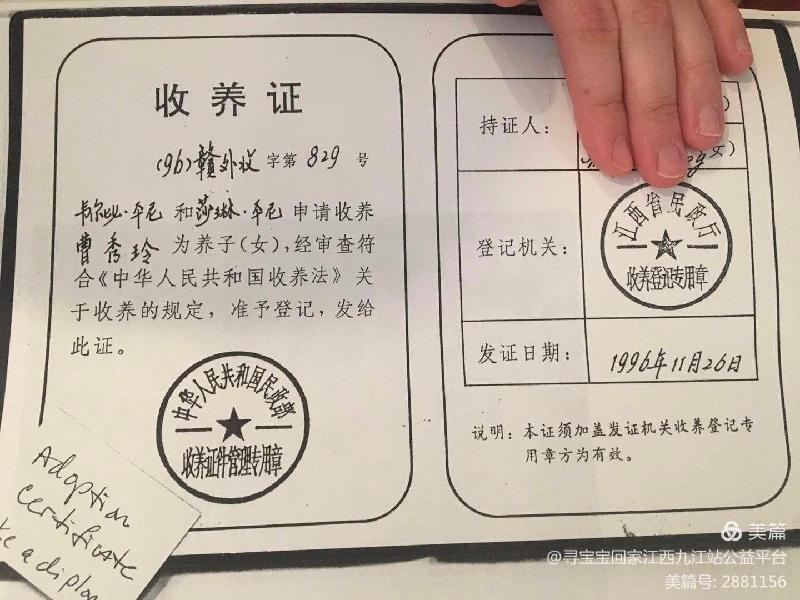 收养证
(96)赣外收字第829号
和莎琳·平尼申请收养
曹秀玲为养子(女),经审查符
合《中华人民共和国收养法》关
于收养的规定,准予登记,发给
此证。
中华人民共和国民政部
收养证件管理专用章
持证人:
女)
登记机关:
江西省民政厅
收养登记专用章
发证日期:
1996年11月26日
说明:本证须加盖发证机关收养登记专
用章方为有效。
Adoption
certificate
a
美篇
@寻宝宝回家江西九江站公益平台
美篇号: 2881156